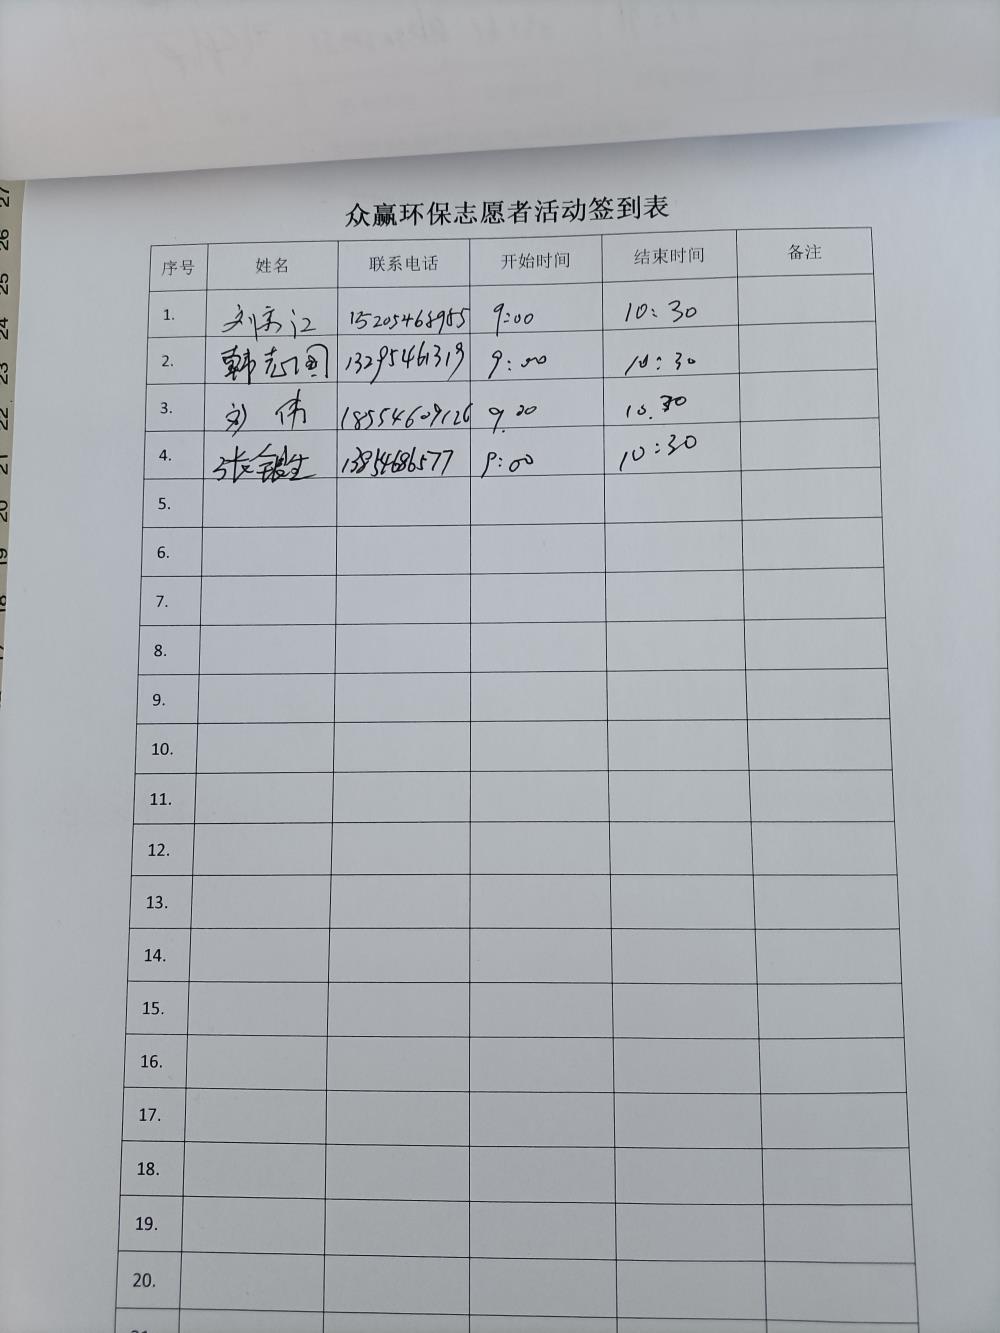 众赢环保志愿者活动签到表
序号 姓名 联系电话 开始时间 结束时间 备注
1. 刘宗江 15205468985 9:00 10:30
2. 韩志国 13295461319 9:00 10:30
3. 刘伟 18554609126 9.00 10.30
4. 张银生 13854686577 9:00 10:30
5.
6.
7.
8.
9.
10.
11.
12.
13.
14.
15.
16.
17.
18.
19.
20.
27
26
25
24
23
22
21
20
19
18